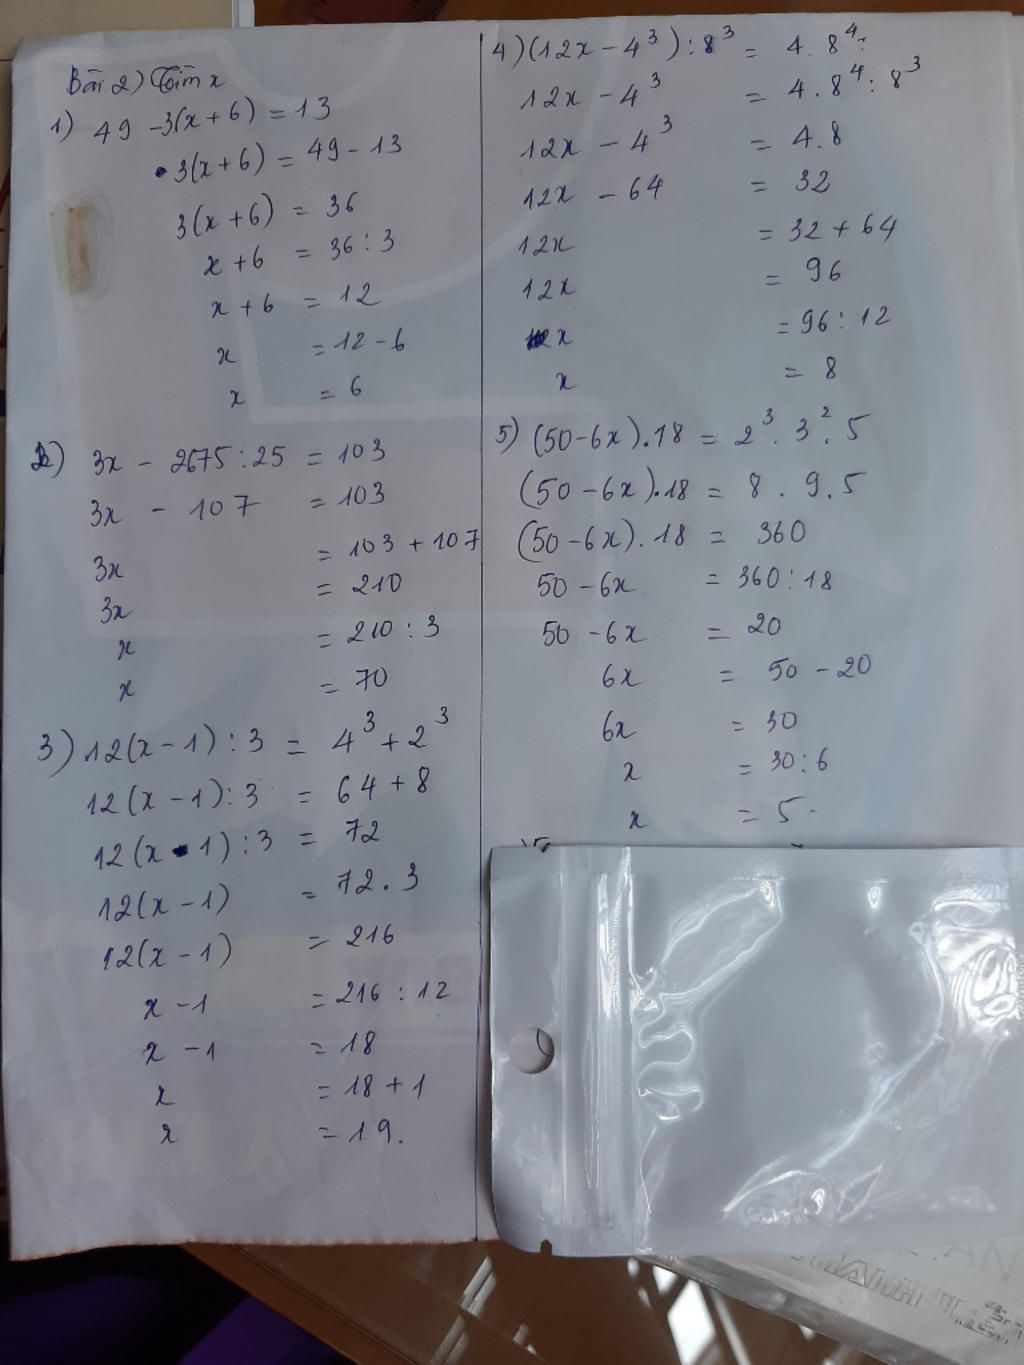 Bài 2) Tìm x
1) 49 - 3(x + 6) = 13
3(x + 6) = 49 - 13
3(x + 6) = 36
x + 6 = 36 : 3
x + 6 = 12
x = 12 - 6
x = 6
2) 3x - 2675 : 25 = 103
3x - 107 = 103
3x = 103 + 107
3x = 210
x = 210 : 3
x = 70
3) 12(x - 1) : 3 = 4³ + 2³
12(x - 1) : 3 = 64 + 8
12(x - 1) : 3 = 72
12(x - 1) = 72 . 3
12(x - 1) = 216
x - 1 = 216 : 12
x - 1 = 18
x = 18 + 1
x = 19.
4) (12x - 4³) : 8³ = 4 . 8⁴
12x - 4³ = 4 . 8⁴ : 8³
12x - 4³ = 4 . 8
12x - 64 = 32
12x = 32 + 64
12x = 96
x = 96 : 12
x = 8
5) (50 - 6x) . 18 = 2³ . 3² . 5
(50 - 6x) . 18 = 8 . 9 . 5
(50 - 6x) . 18 = 360
50 - 6x = 360 : 18
50 - 6x = 20
6x = 50 - 20
6x = 30
x = 30 : 6
x = 5